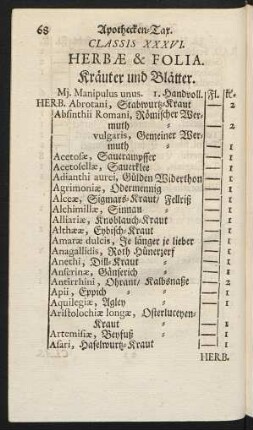 68 Apothecken-Tax.
CLASSIS XXXVI.
HERBÆ & FOLIA.
Kräuter und Blätter.
Mj. Manipulus unus. 1. Handvoll. Fl. kr.
HERB. Abrotani, Stabwurtz-Kraut 2
Absinthii Romani, Römischer Wermuth 2
vulgaris, Gemeiner Wermuth 1
Acetosæ, Saurampffer 1
Acetosellæ, Saurklee 1
Adianthi aurei, Gülden Widerthon 1
Agrimoniæ, Odermennig 1
Alceæ, Sigmars-Kraut / Fellriß 1
Alchimillæ, Sinnau 1
Alliariæ, Knoblauch-Kraut 1
Althææ, Eybisch-Kraut 1
Amaræ dulcis, Je länger je lieber 1
Anagallidis, Roth Hünerzerf 1
Anethi, Dill-Kraut 1
Anserinæ, Gänserich 1
Antirrhini, Ohrant / Kalbsnaße 2
Apii, Eppich 1
Aquilegiæ, Agley 1
Aristolochiæ longæ, Osterluceyen-
Kraut 1
Artemisiæ, Beyfuß 1
Asari, Haselwurtz-Kraut 1
HERB.